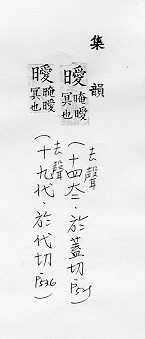 集韻
曖晻曖冥也(去聲十四太:於蓋切.
曖晻曖冥也(去聲十九代:於代切.P536)